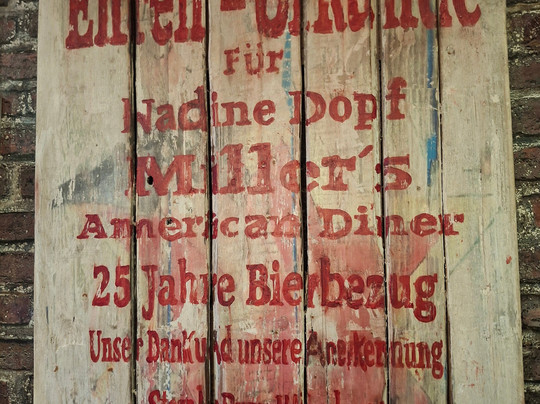 Ehren-Urkunde
Für
Nadine Dopf
Miller's
American Diner
25 Jahre Bierbezug
Unser Dank und unsere Anerkennung